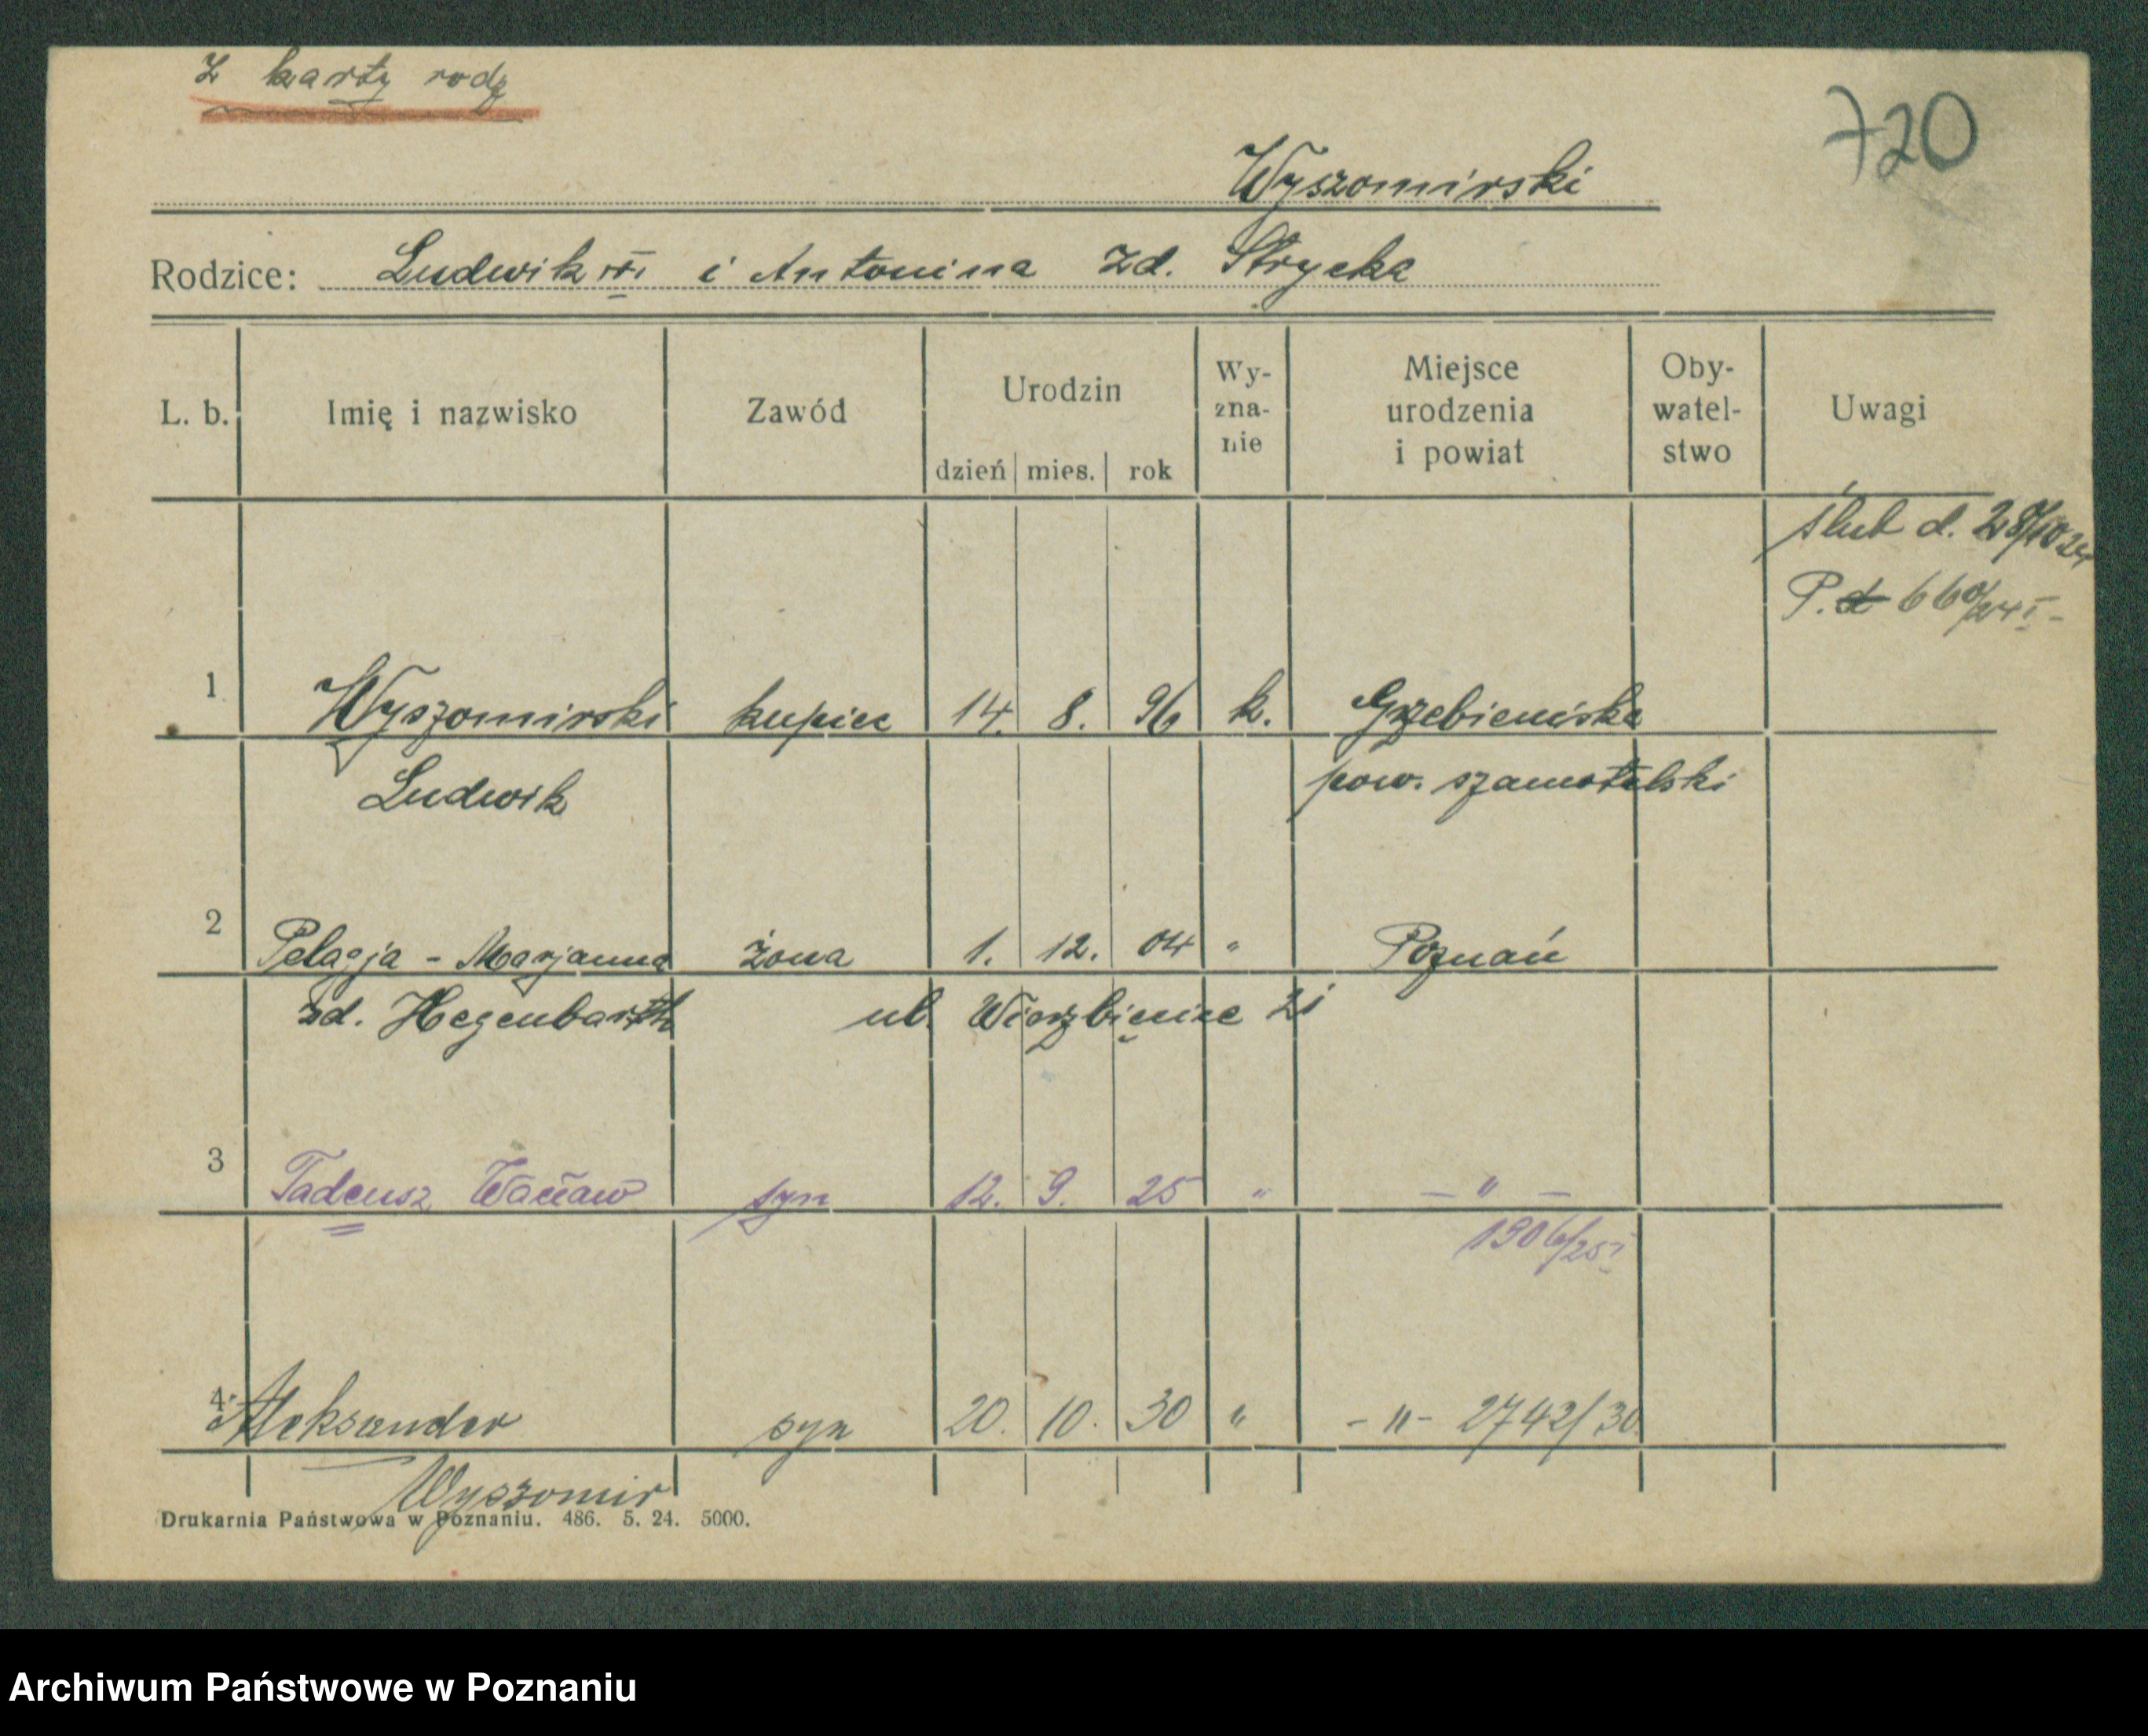 z karty rodz
720
Wyszomirski
Rodzice: Ludwik i Antonina zd. Strycka
L. b. Imię i nazwisko Zawód Urodzin dzień mies. rok Wy-zna-nie Miejsce urodzenia i powiat Oby-watel-stwo Uwagi
ślub d. 28/10 24
P. 660/24 I
1 Wyszomirski kupiec 14. 8. 96 k. Grzebienisko
Ludwik pow. szamotulski
2 Pelagja - Marjanna żona 1. 12. 04 " Poznań
zd. Hegenbarth ul. Wierzbięcice 21
3 Tadeusz Wacław syn 12. 9. 25 " — " —
1306/25 I
4. Aleksander syn 20. 10. 30 " - " - 2742/30
Wyszomir
Drukarnia Państwowa w Poznaniu. 486. 5. 24. 5000.
Archiwum Państwowe w Poznaniu